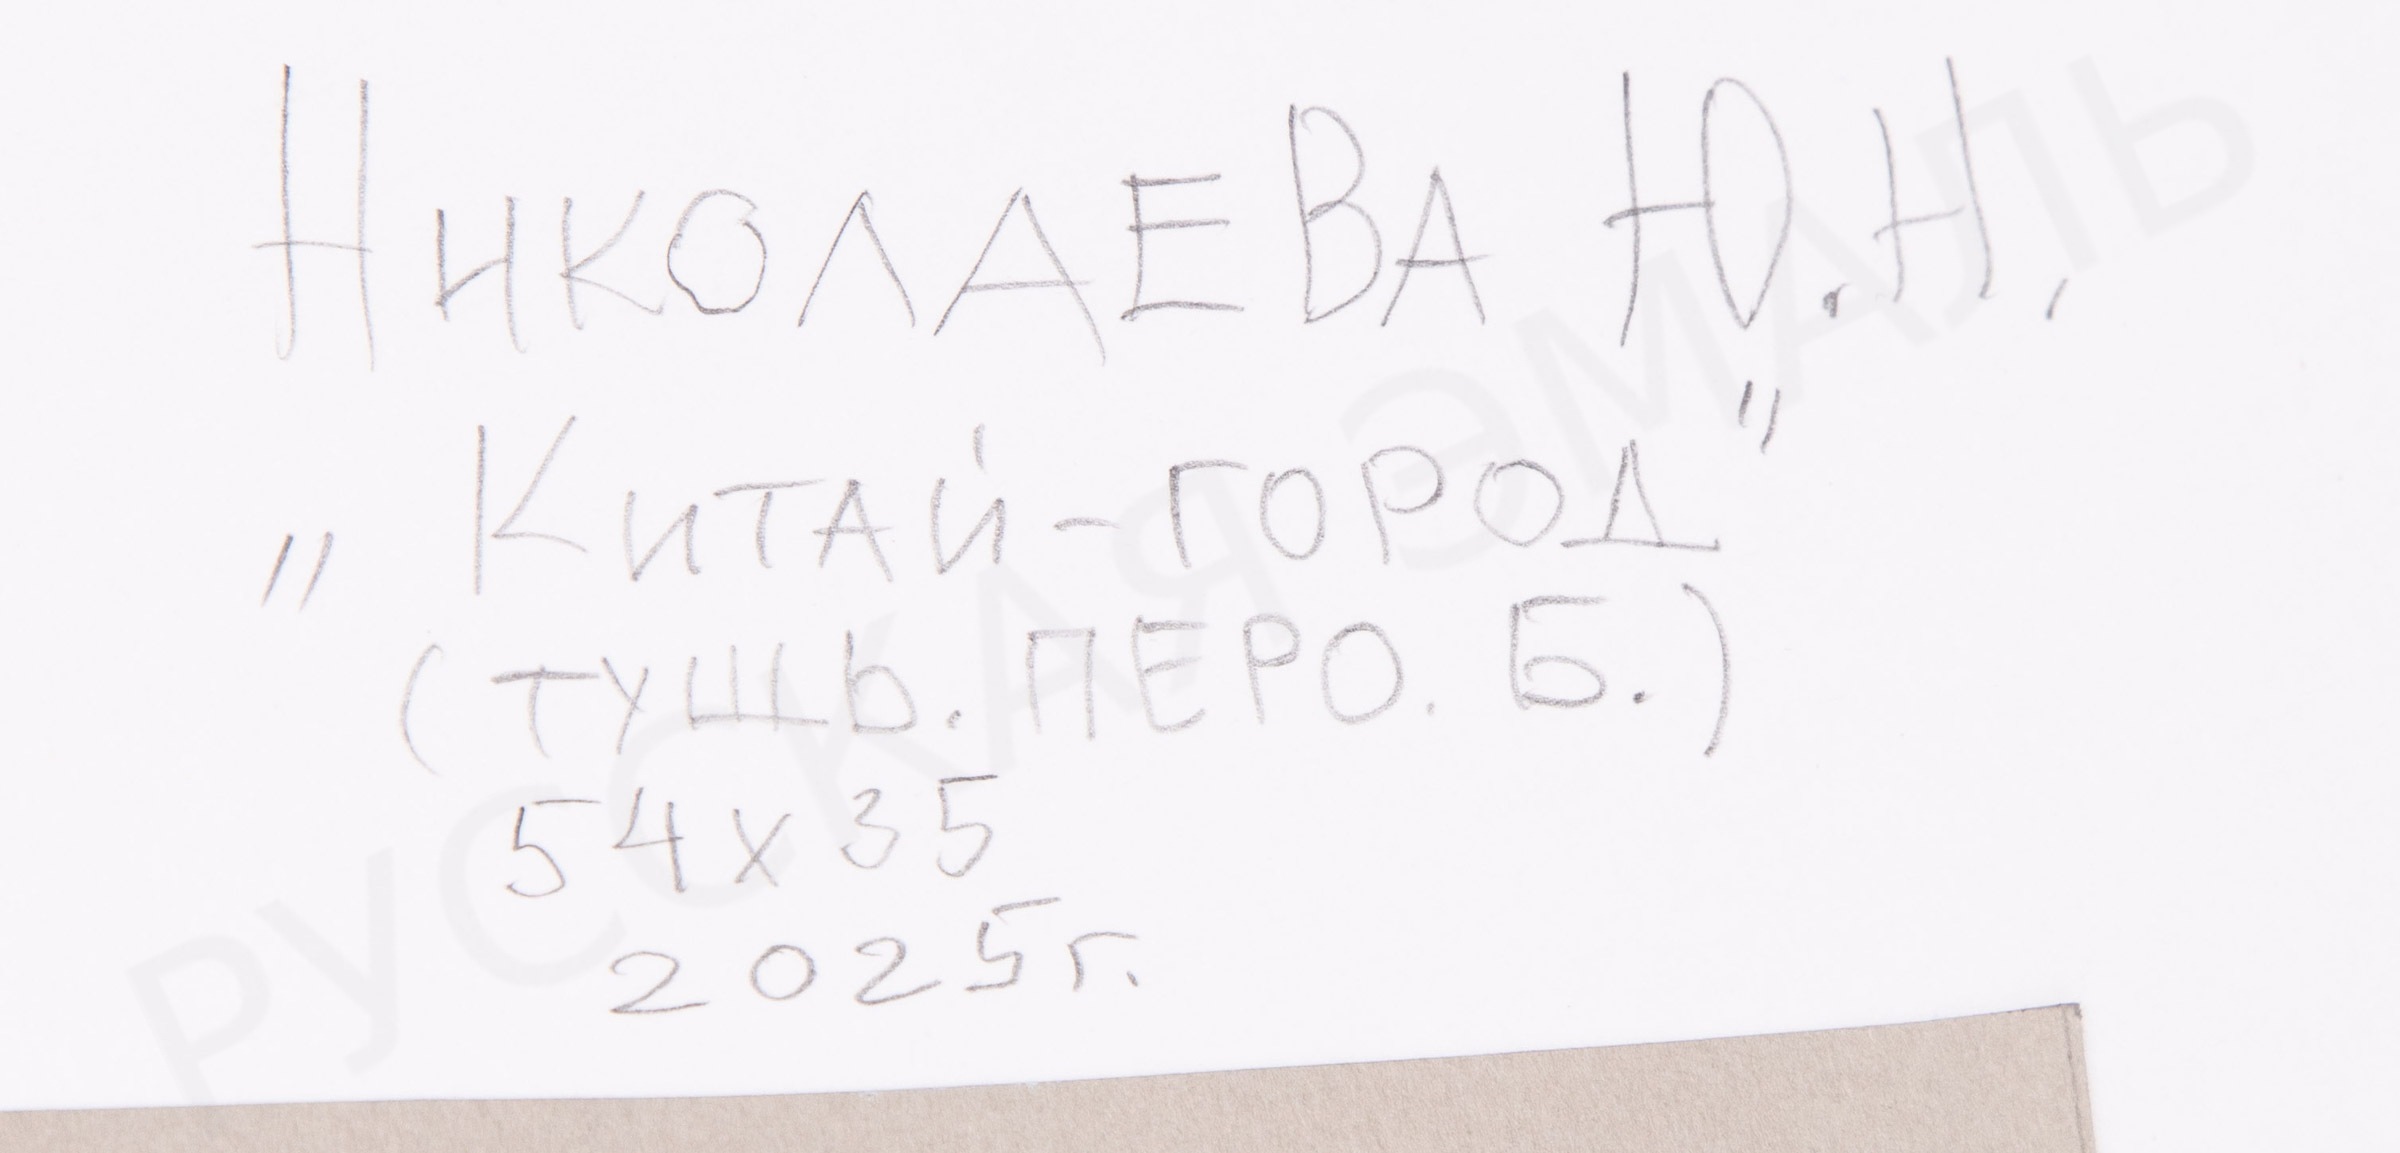 Николаева Ю.Н.
„Китай-город"
(тушь. перо. Б.)
54х35
2025г.
РУССКАЯ ЭМАЛЬ